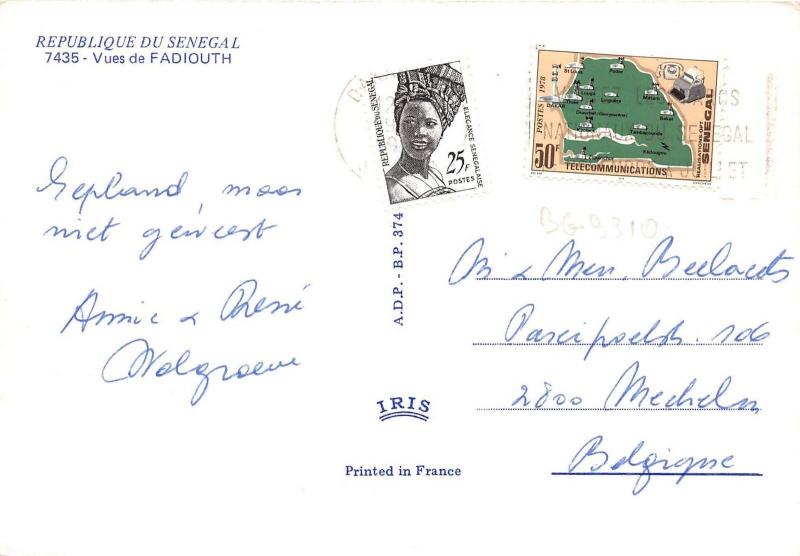 REPUBLIQUE DU SENEGAL
7435 - Vues de FADIOUTH
REPUBLIQUE DU SENEGAL
ELEGANCE SENEGALAISE
25F
POSTES
POSTES 1978
St Louis
Podor
Matam
Linguère
Thiès
DAKAR
Bakel
Kaolack
Tambacounda
Kédougou
Ziguinchor
50F
TELECOMMUNICATIONS
REALISATIONS OPT
SENEGAL
SENEGAL
Gepland, maar
niet geweest
Annie & René
Walgraeve
A.D.P. - B.P. 374
IRIS
Printed in France
BG 9310
Mr & Men.
106
2800 Mechelen
Belgique